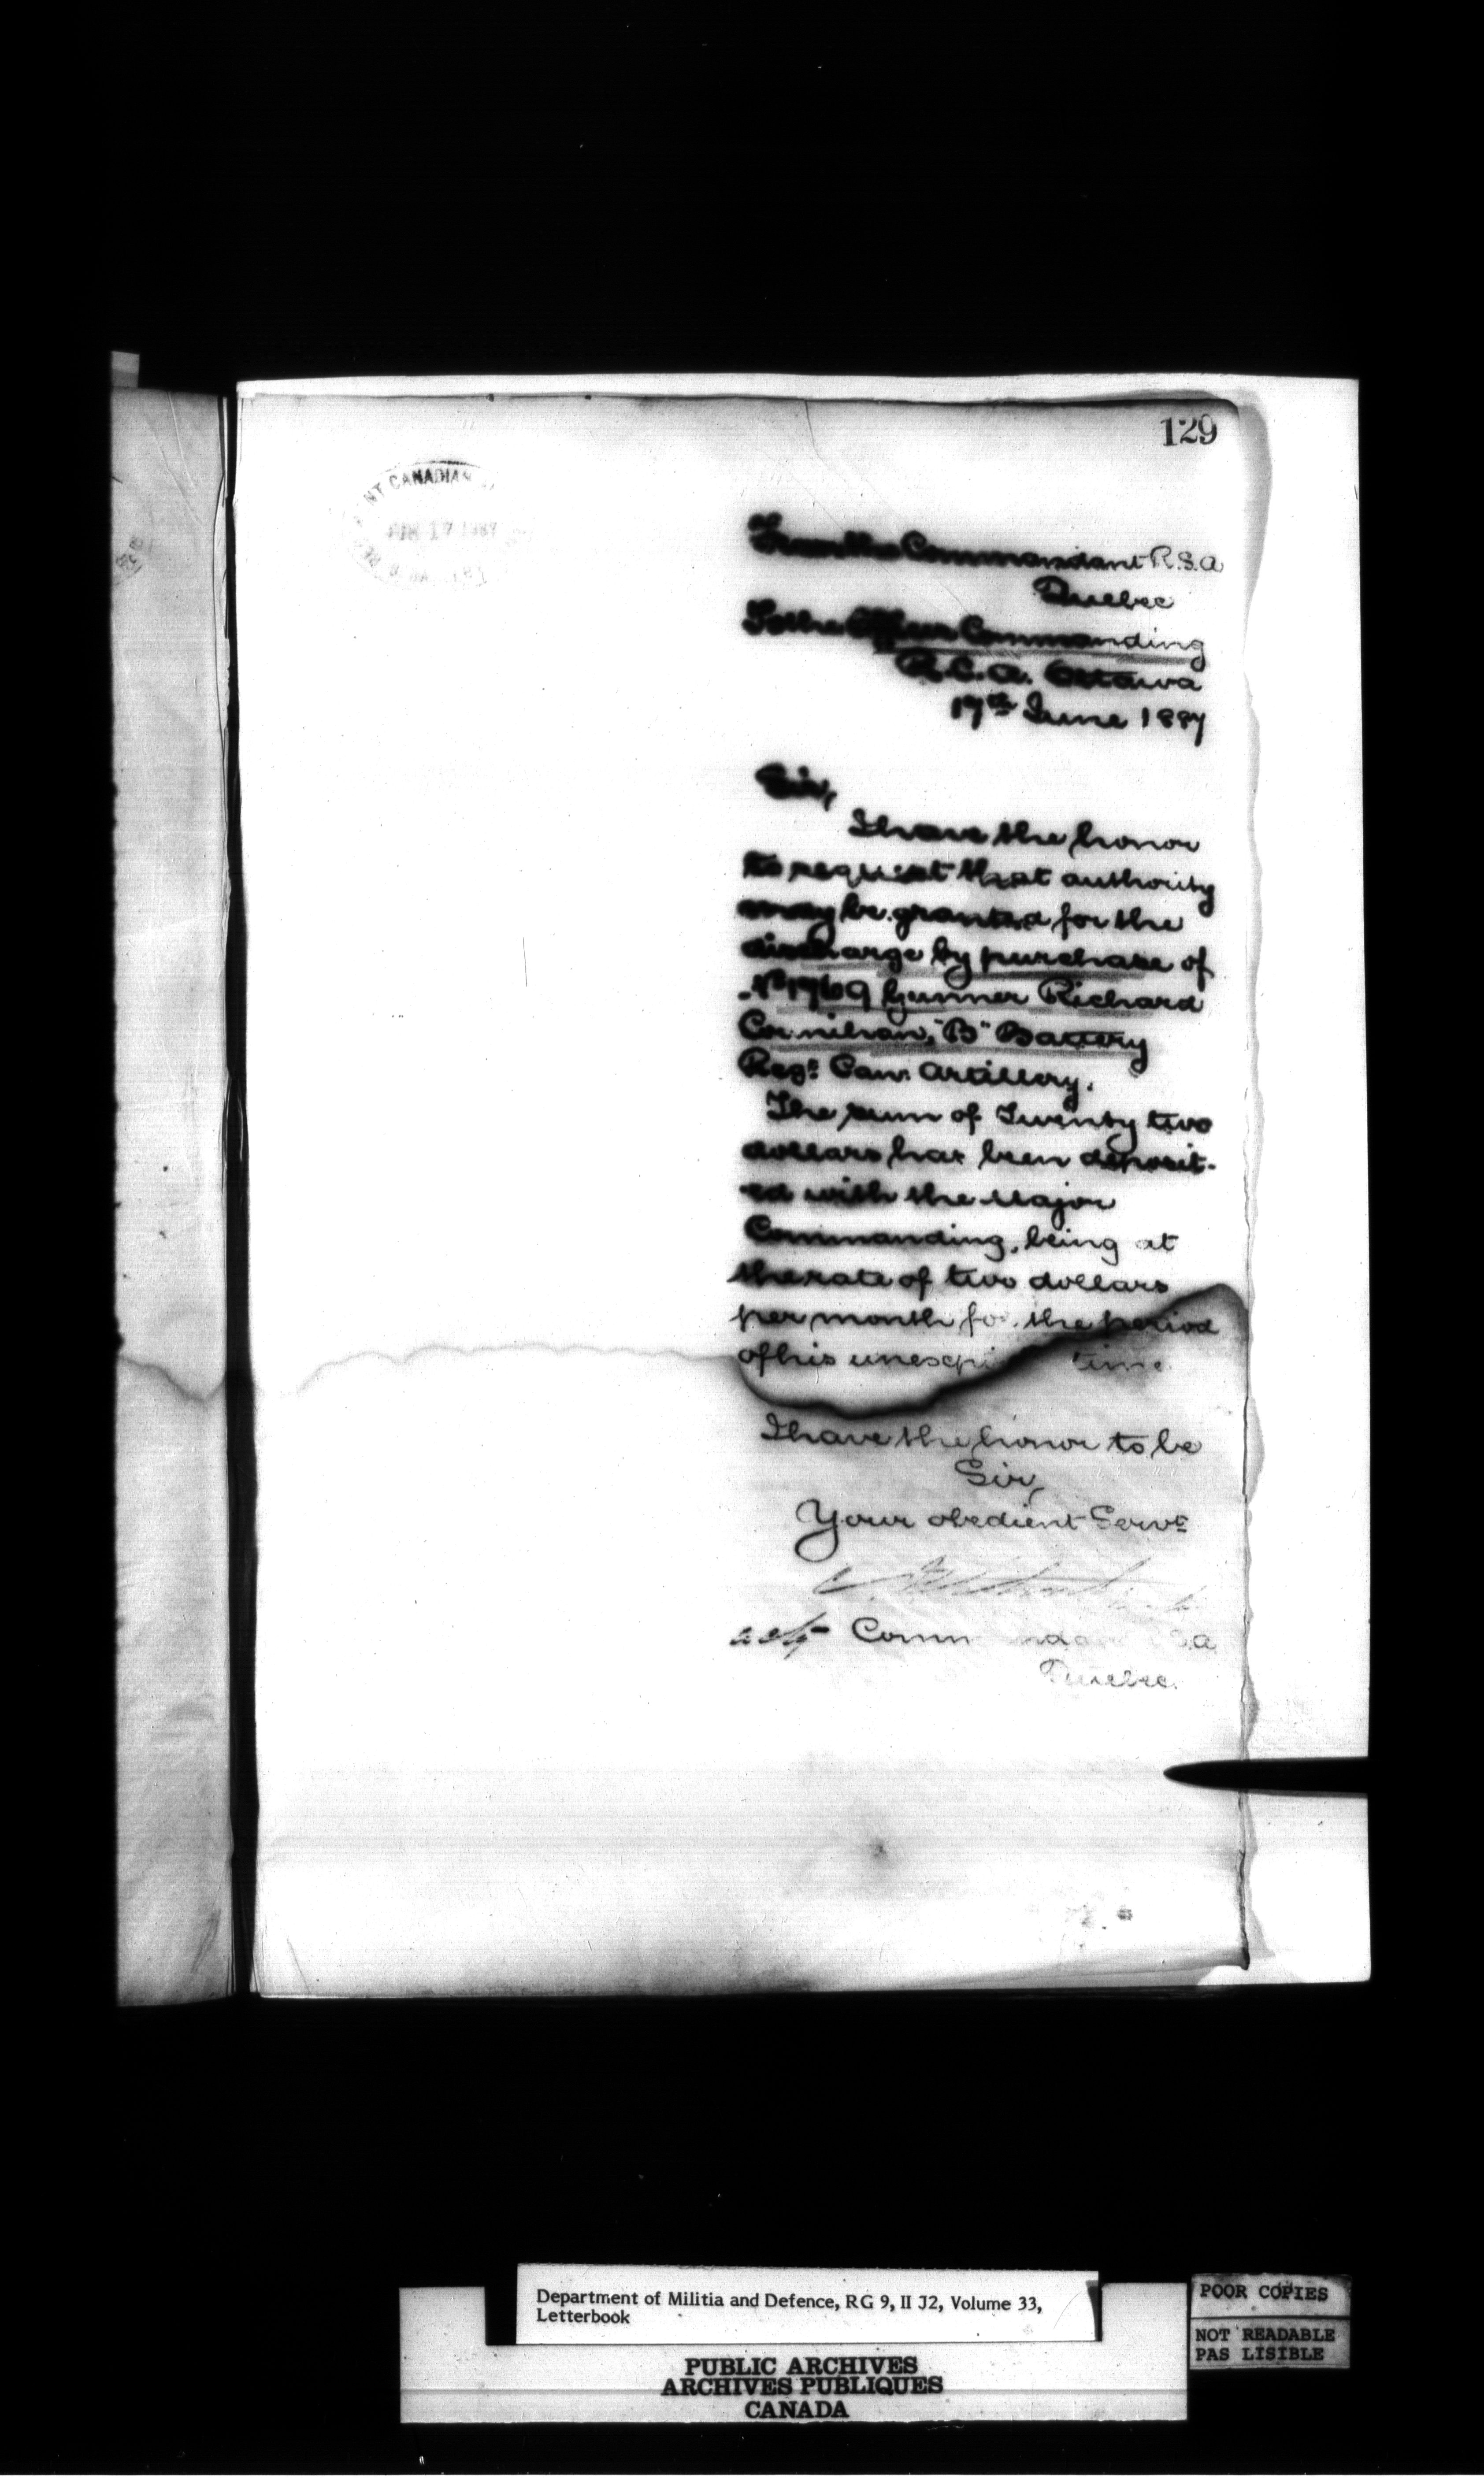 129
NT CANADIAN
17 1887
From the Commandant R.S.A
Quebec
To the Officer Commanding
R.C.A. Ottawa
17th June 1887
Sir,
I have the honor
to request that authority
may be granted for the
discharge by purchase of
No 1769 Gunner Richard
"B" Battery
Regt. Can. Artillery.
The sum of Twenty two
dollars has been deposit-
ed with the Major
Commanding, being at
the rate of two dollars
per month for the period
of his time
I have the honor to be
Sir,
Your obedient Servt
actg
Quebec.
Department of Militia and Defence, RG 9, II J2, Volume 33,
Letterbook
PUBLIC ARCHIVES
ARCHIVES PUBLIQUES
CANADA
POOR COPIES
NOT READABLE
PAS LISIBLE